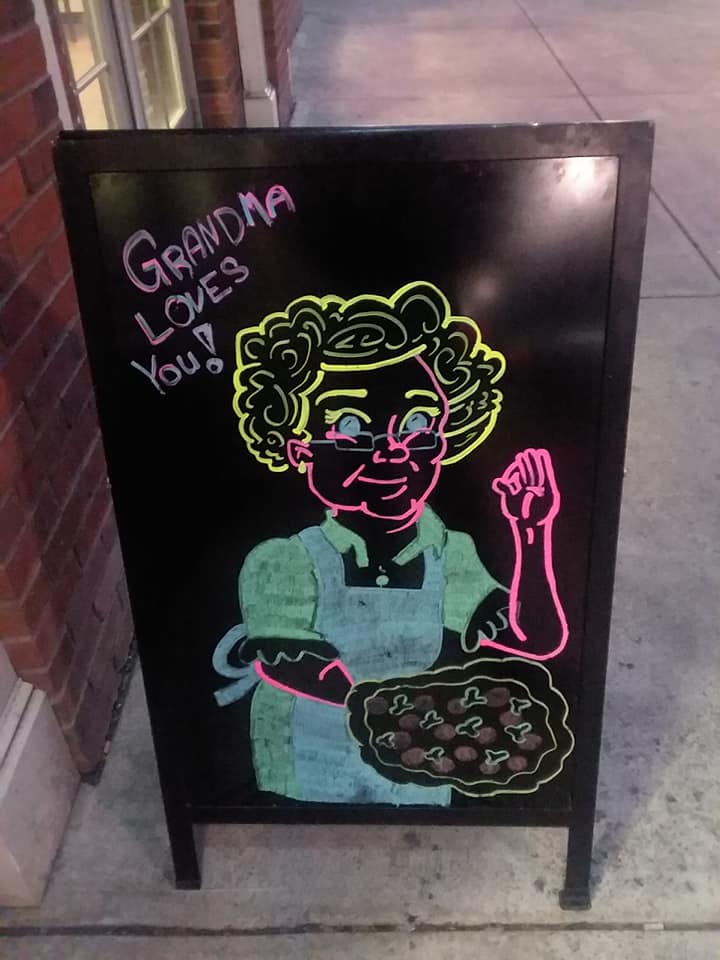 GRANDMA
LOVES
YOU!